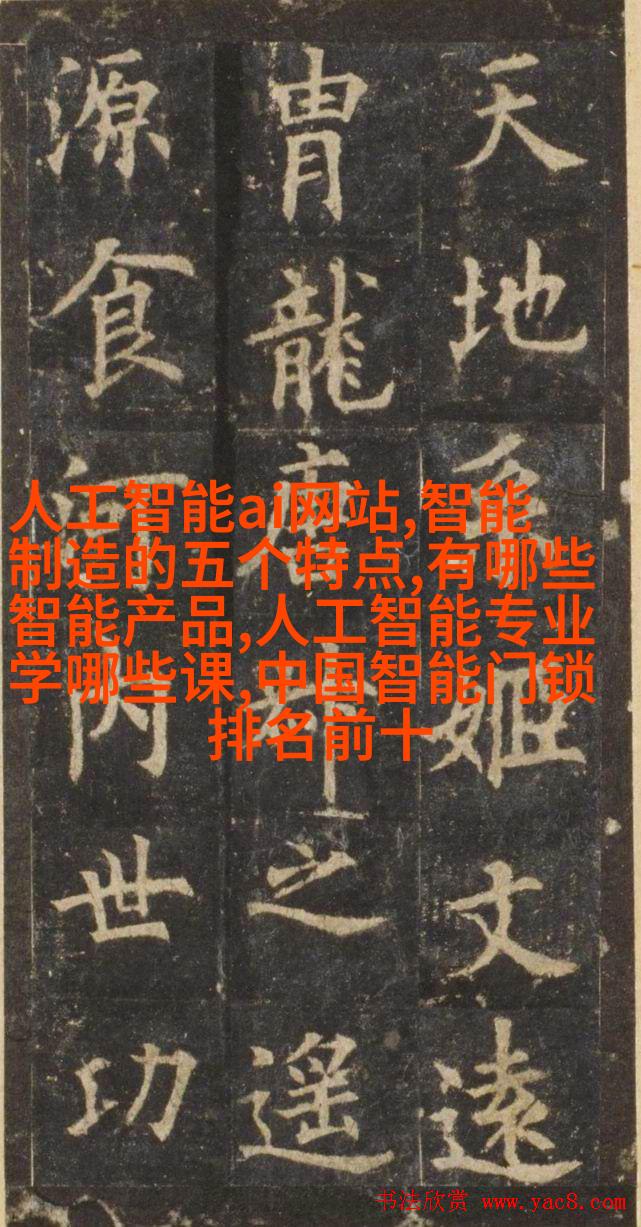 天地姬文遠
胄龍之遥
源食內世功
人工智能ai网站,智能
制造的五个特点,有哪些
智能产品,人工智能专业
学哪些课,中国智能门锁
排名前十
书法欣赏 www.yac8.com